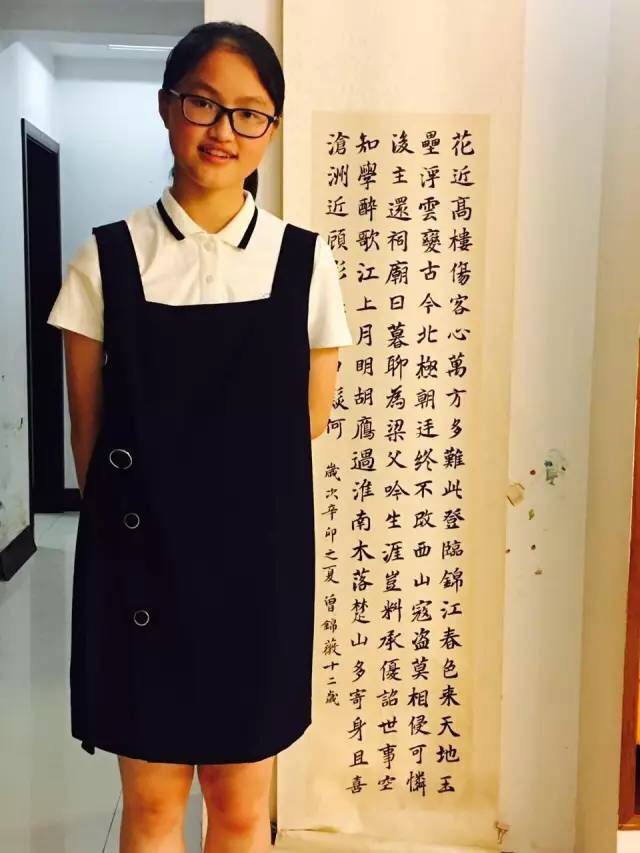 花近高樓傷客心萬方多難此登臨錦江春色来天地玉
壘浮雲變古今北極朝廷終不改西山寇盜莫相侵可憐
後主還祠廟日暮聊為梁父吟生涯豈料承優詔世事空
知學醉歌江上月明胡鴈過淮南木落楚山多寄身且喜
滄洲近顧影髮何
歲次辛卯之夏曾錦薇十二歲